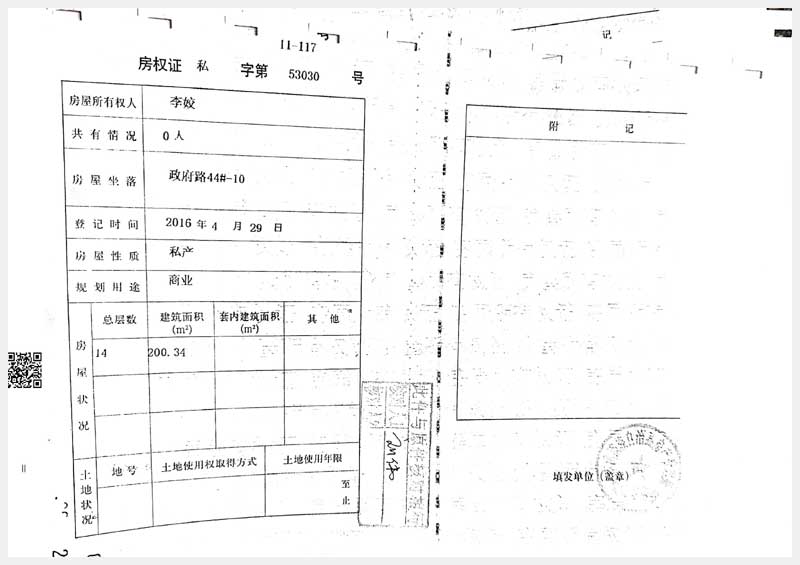 11-117
记
房权证 私 字第 53030 号
房屋所有权人 李姣
共有情况 0人
房屋坐落 政府路44#-10
登记时间 2016年4月29日
房屋性质 私产
规划用途 商业
房屋状况
总层数 建筑面积(m²) 套内建筑面积(m²) 其他
14 200.34
土地状况
地号 土地使用权取得方式 土地使用年限
至
止
附 记
填发单位(盖章)